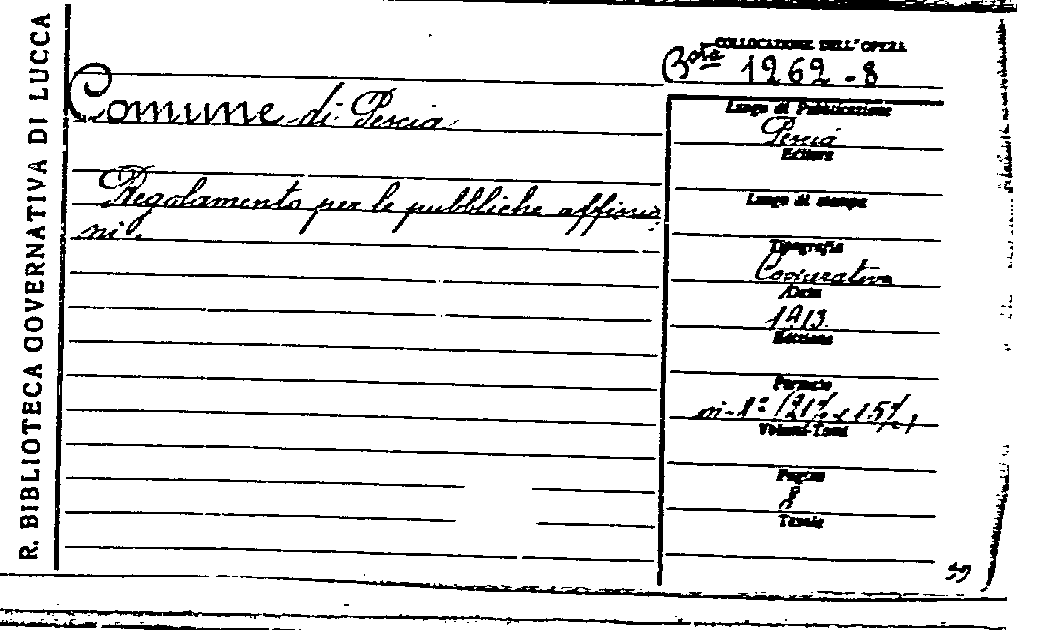 R. BIBLIOTECA GOVERNATIVA DI LUCCA
COLLOCAZIONE DELL'OPERA
B.ta 1262 - 8
Comune di Pescia
Regolamento per le pubbliche affissio
ni.
Luogo di Pubblicazione
Pescia
Editore
Luogo di stampa
Tipografia
Cooperativa
Data
1913
Edizione
Formato
in-8°
Volumi-Tomi
Pagine
8
Tavole